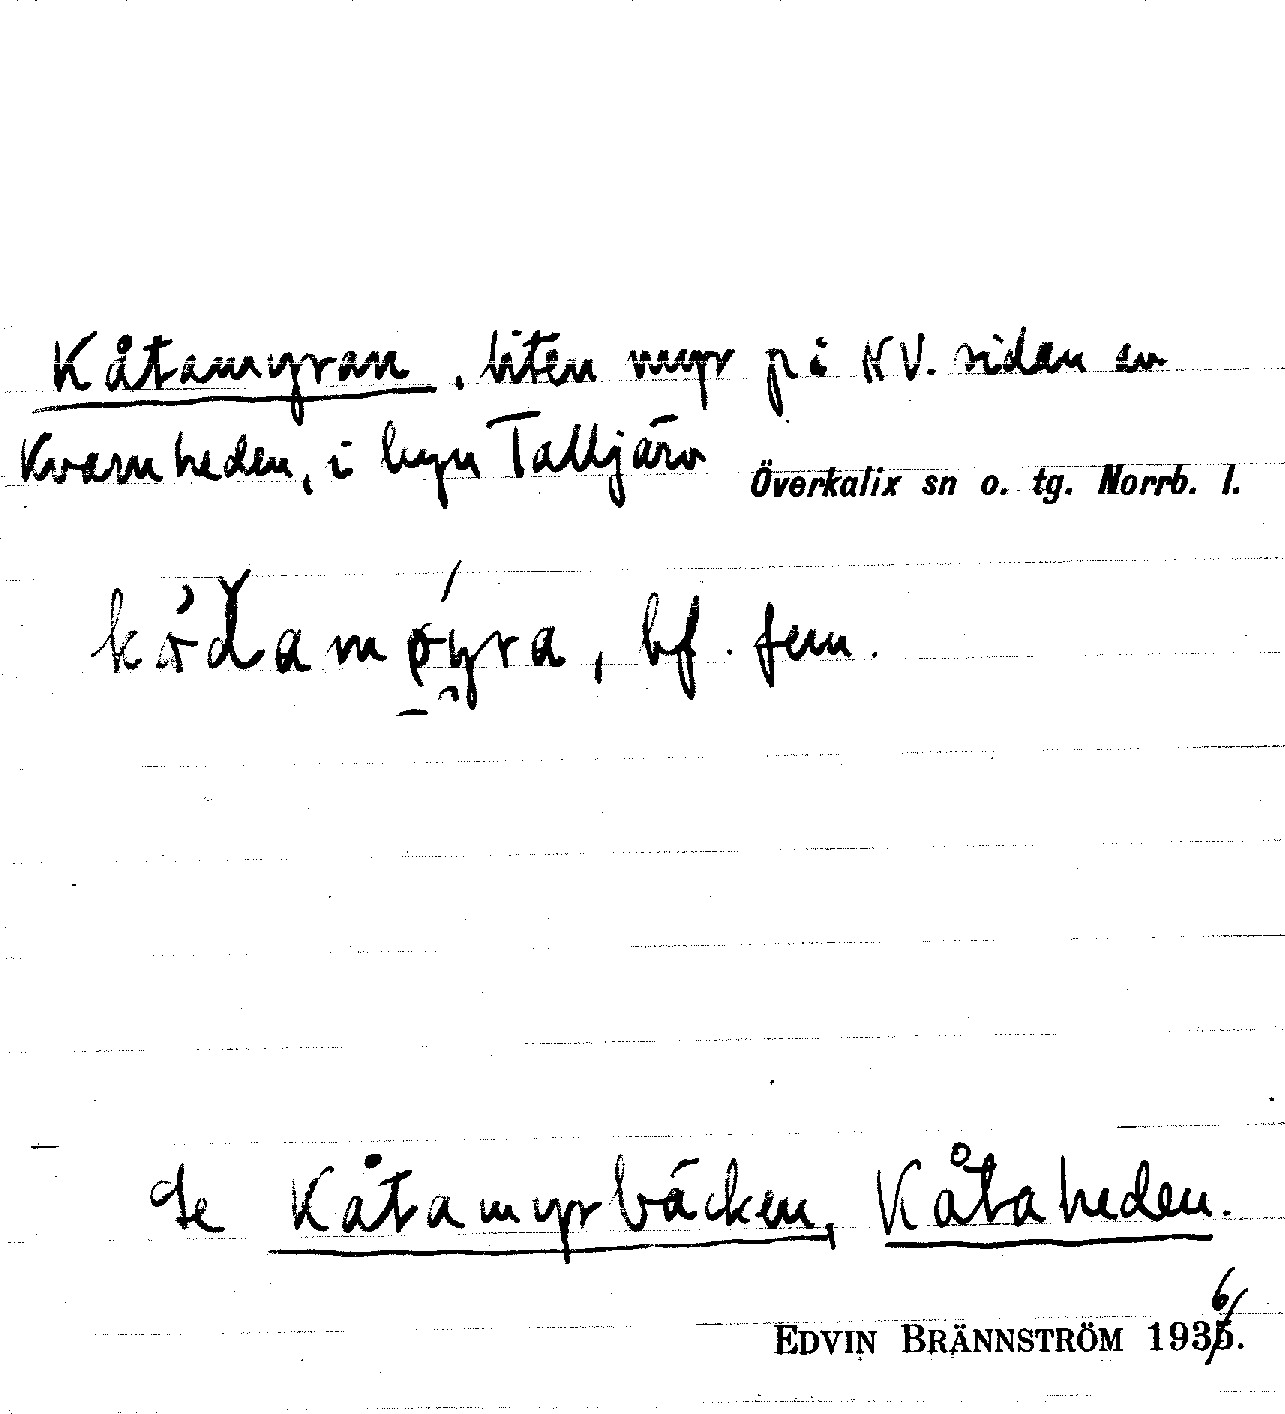 Kåtamyran, liten myr på NV. sidan av
Kvarnheden, i byn Talljärv Överkalix sn o. tg. Norrb. l.
kådamøyra, bf. fem.
Se Kåtamyrbäcken, Kåtaheden.
EDVIN BRÄNNSTRÖM 1936.